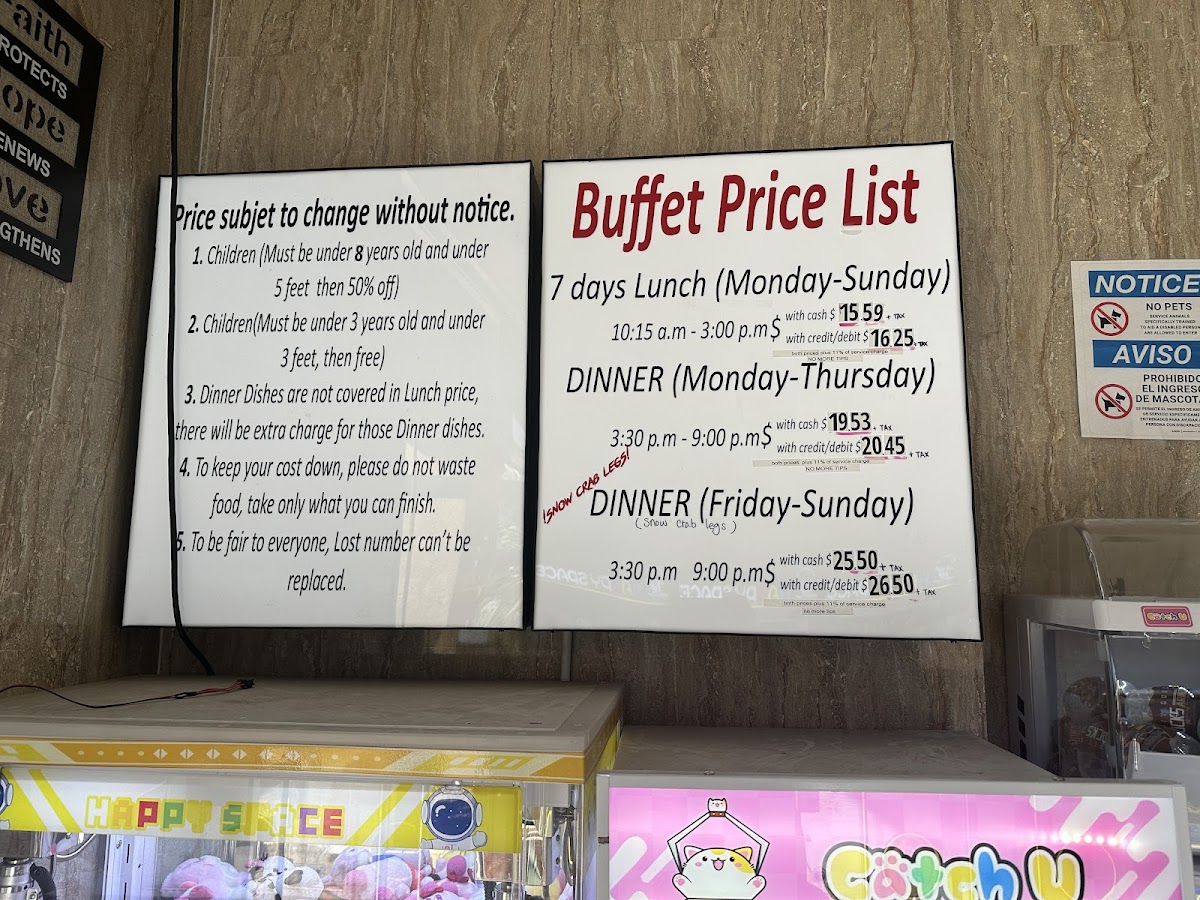 aith
ROTECTS
ope
ENEWS
ove
GTHENS
Price subjet to change without notice.
1. Children (Must be under 8 years old and under
5 feet then 50% off)
2. Children(Must be under 3 years old and under
3 feet, then free)
3. Dinner Dishes are not covered in Lunch price,
there will be extra charge for those Dinner dishes.
4. To keep your cost down, please do not waste
food, take only what you can finish.
5. To be fair to everyone, Lost number can't be
replaced.
Buffet Price List
7 days Lunch (Monday-Sunday)
10:15 a.m - 3:00 p.m $
with cash $ 15.59 + TAX
with credit/debit $ 16.25 + TAX
both prices plus 11% of service charge
NO MORE TIPS
DINNER (Monday-Thursday)
3:30 p.m - 9:00 p.m $
with cash $ 19.53 + TAX
with credit/debit $ 20.45 + TAX
both prices plus 11% of service charge
NO MORE TIPS
!SNOW CRAB LEGS!
DINNER (Friday-Sunday)
(Snow crab legs)
3:30 p.m 9:00 p.m $
with cash $ 25.50 + TAX
with credit/debit $ 26.50 + TAX
both prices plus 11% of service charge
no more tips
NOTICE
NO PETS
SERVICE ANIMALS
SPECIFICALLY TRAINED
TO AID A DISABLED PERSON
ARE ALLOWED TO ENTER
AVISO
PROHIBIDO
EL INGRESO
DE MASCOTA
Catch U
HAPPY SPACE
Catch U